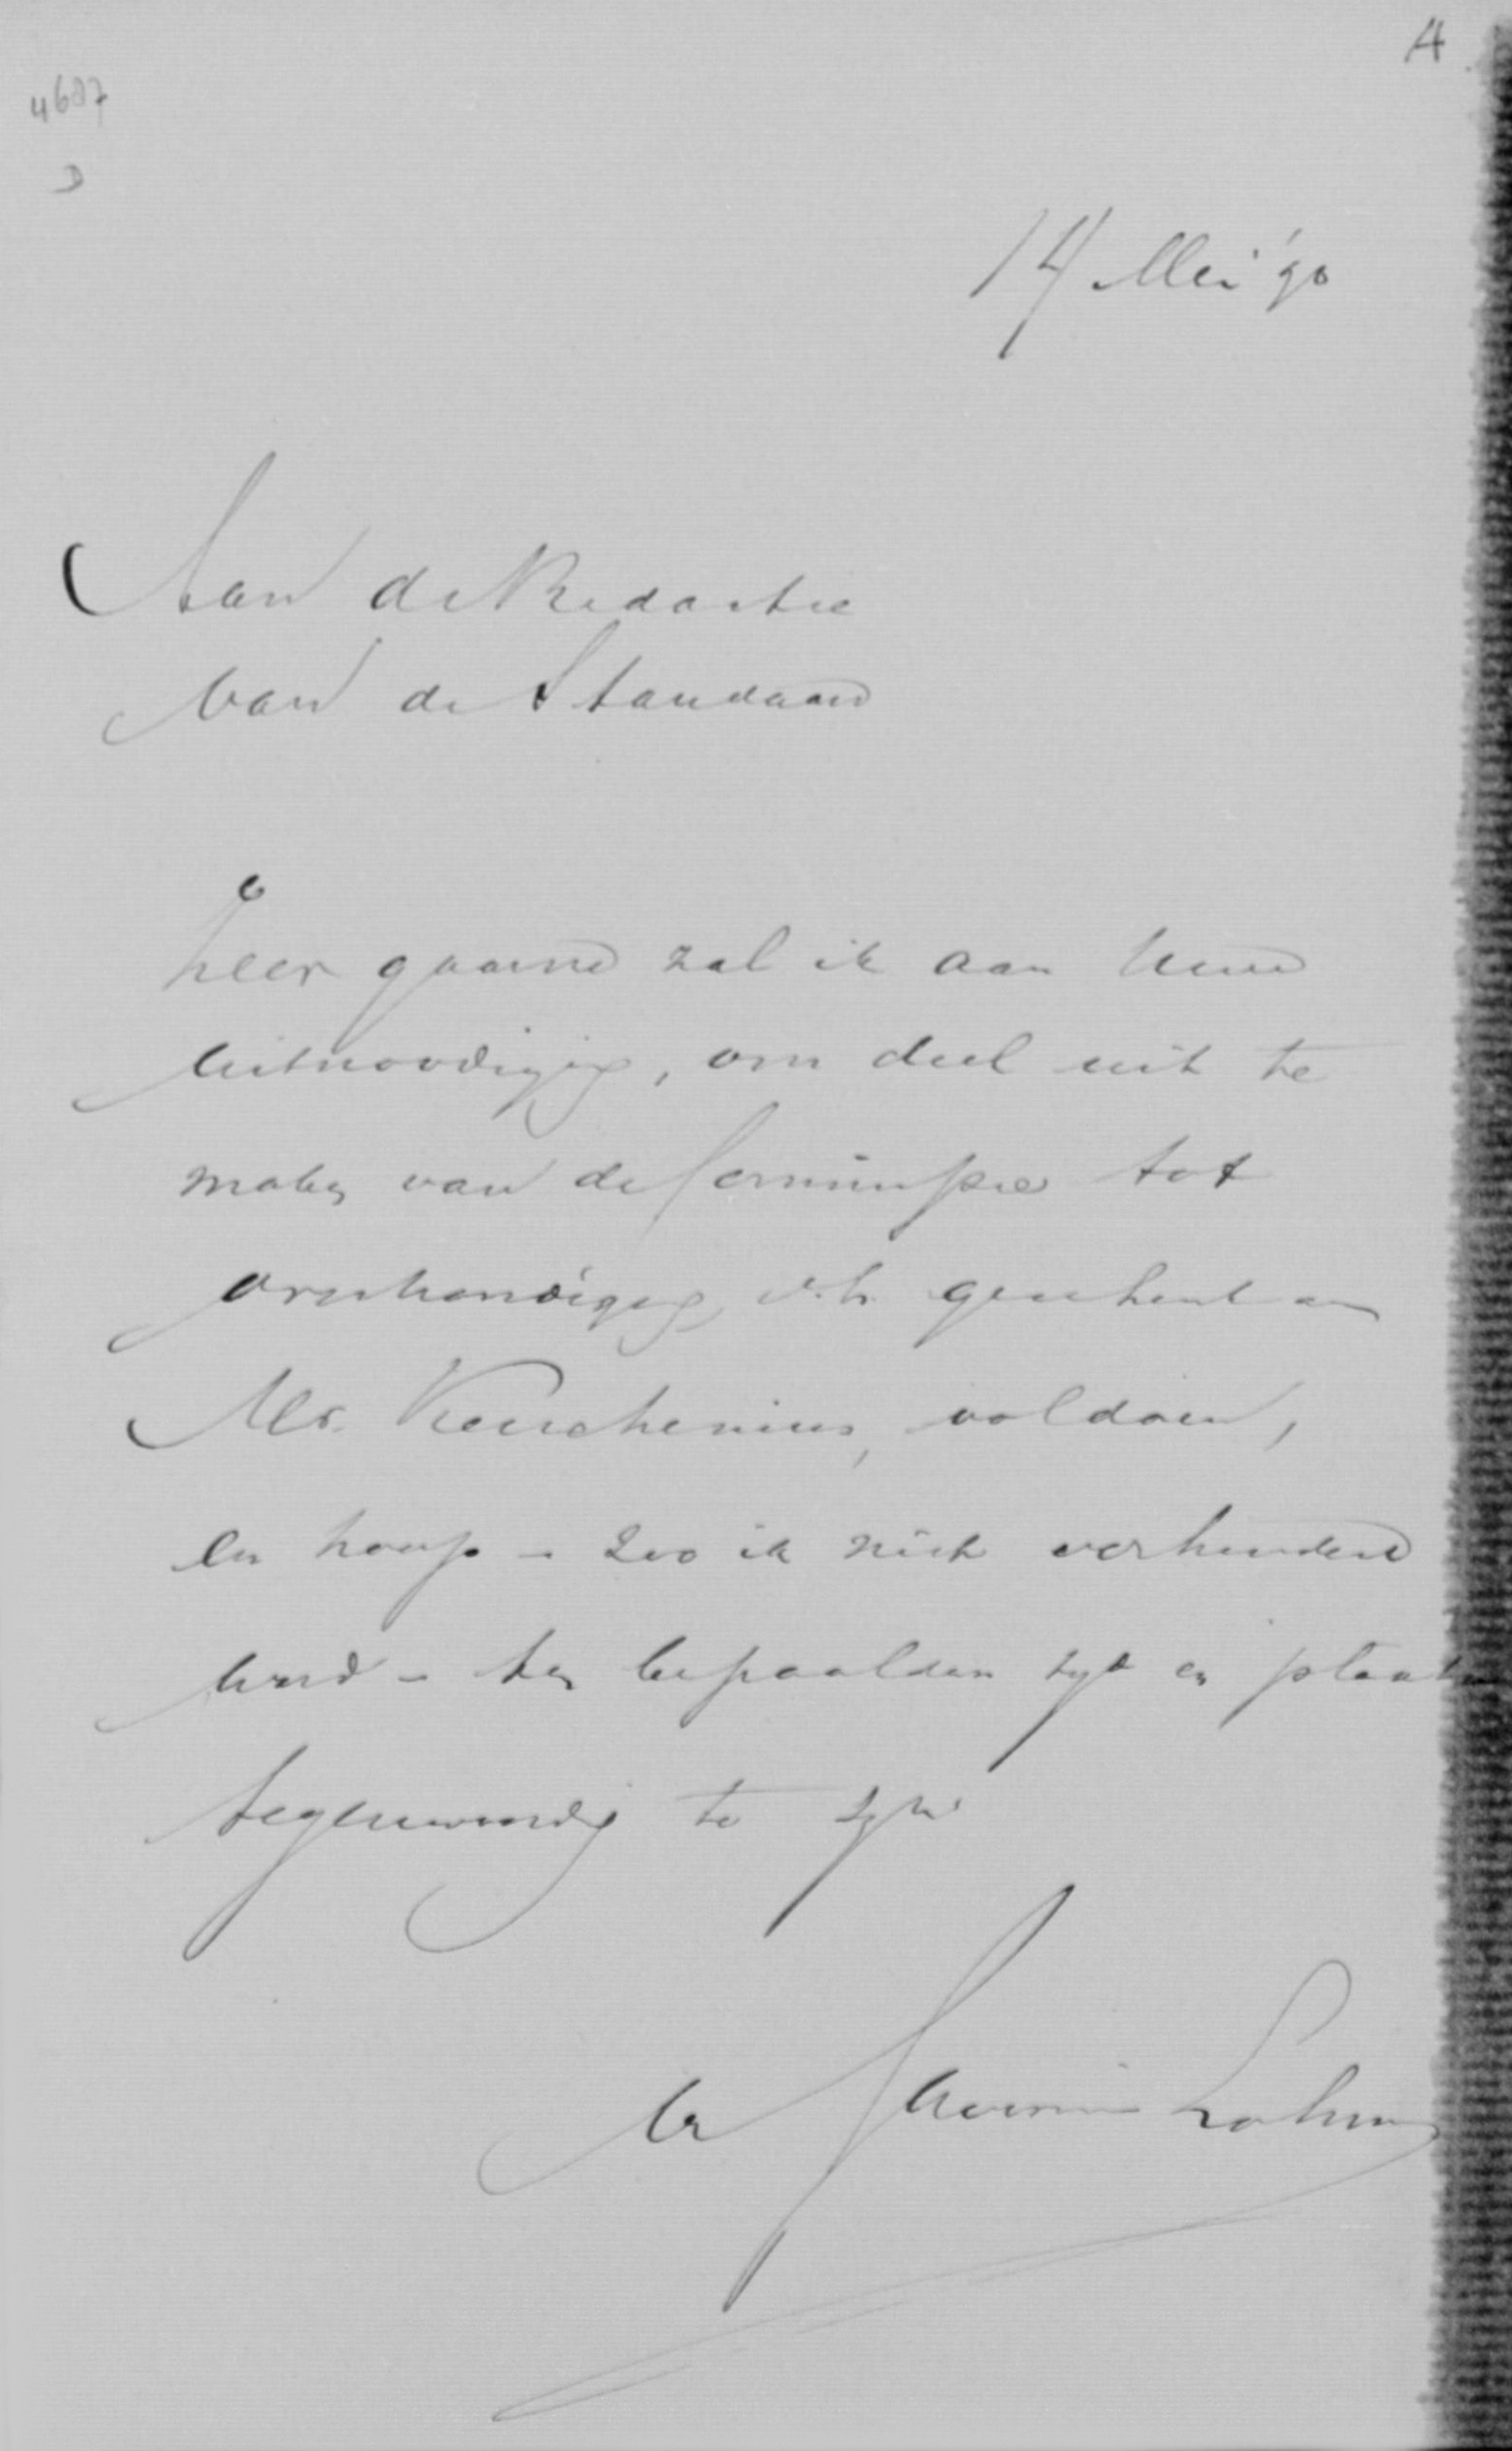 A
4687
D
14 Mei '90
Aan de Redactie
van de Standaard
Zeer gaarne zal ik aan Uwe
uitnoodiging, om deel uit te
maken van de Commissie tot
overhandiging v.h. geschenk aan
Mr. Keuchenius, voldoen,
en hoop - zoo ik niet verhinderd
word - ten bepaalden tyd en plaats
tegenwoordig te zyn
A F Savornin Lohman